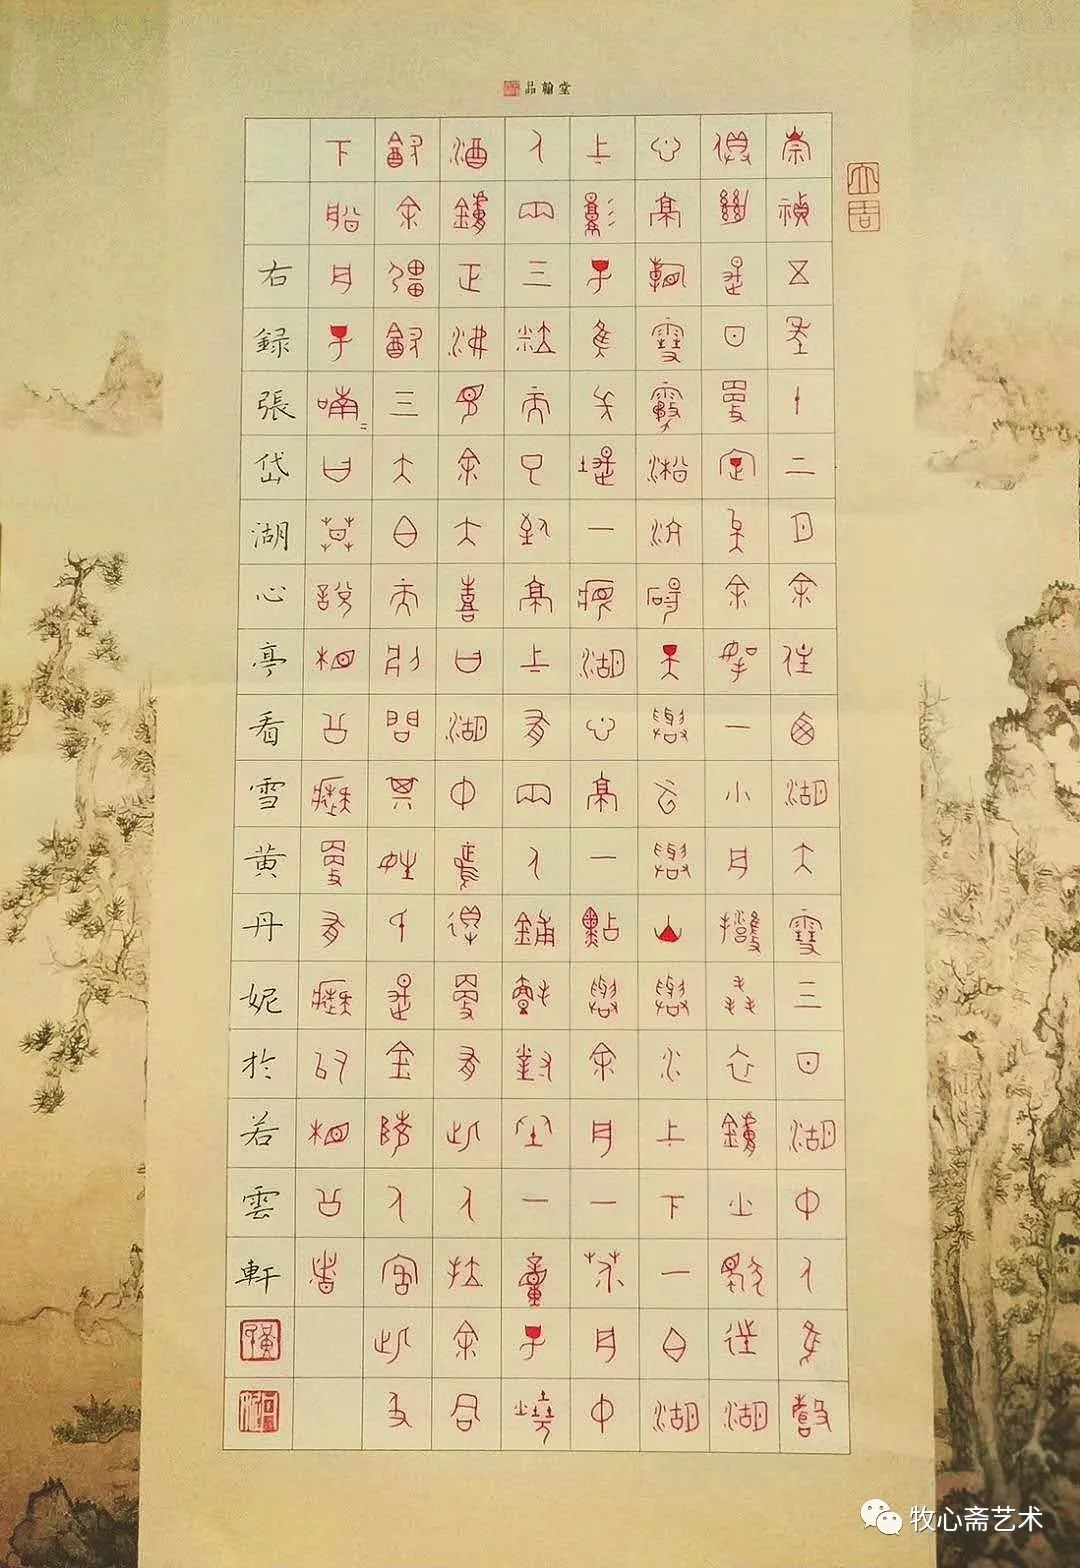 品翰堂
崇禎五年十二月余住西湖大雪三日湖中人鳥聲
俱絕是日更定矣余拏一小舟擁毳衣爐火獨往湖
心亭看雪霧凇沆碭天與雲與山與水上下一白湖
上影子惟長堤一痕湖心亭一點與余舟一芥舟中
人兩三粒而已到亭上有兩人鋪氈對坐一童子燒
酒爐正沸見余大喜曰湖中焉得更有此人拉余同
飲余強飲三大白而別問其姓氏是金陵人客此及
下船舟子喃〻曰莫說相公癡更有癡似相公者
右録張岱湖心亭看雪黃丹妮於若雲軒
牧心斋艺术